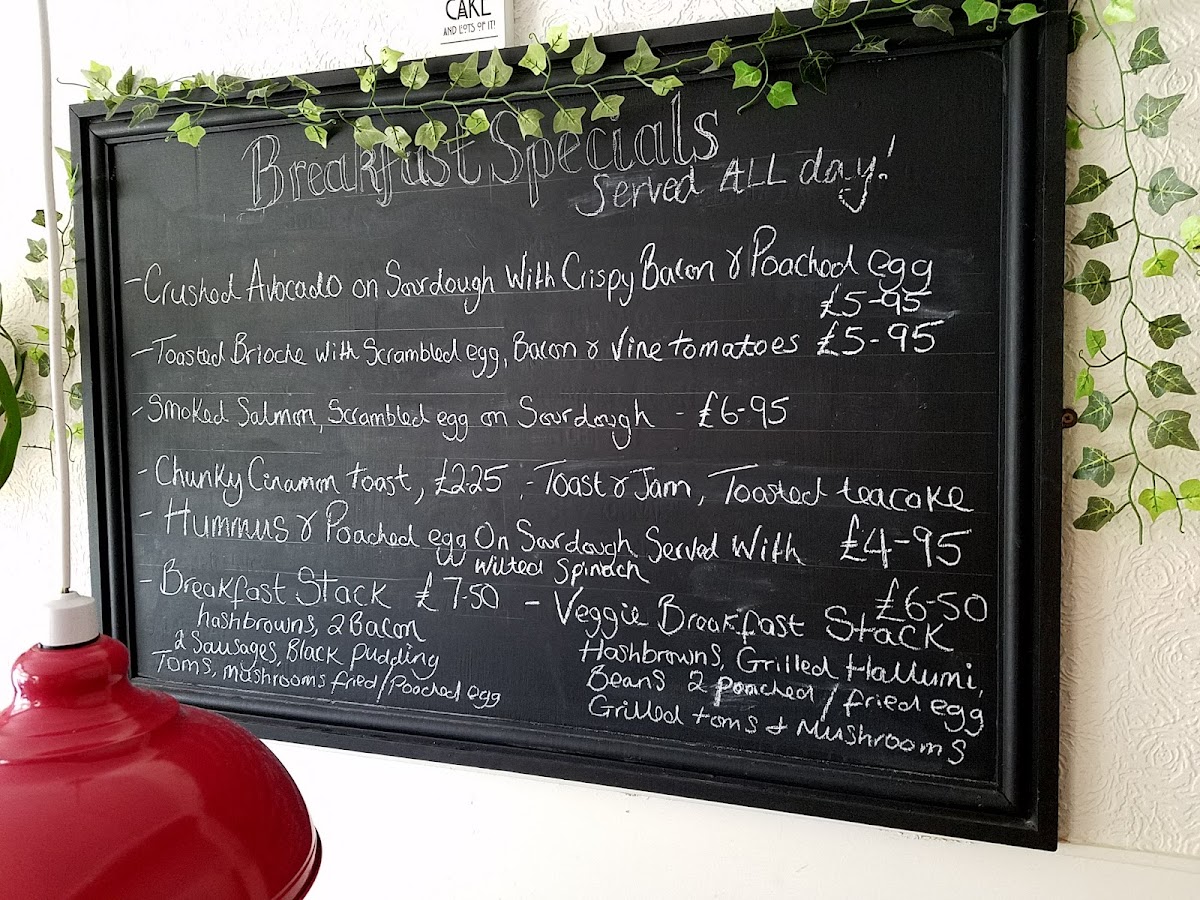 CAKE
AND LOTS OF IT!
Breakfast Specials
Served ALL day!
- Crushed Avocado on Sourdough With Crispy Bacon & Poached egg
£5-95
- Toasted Brioche with Scrambled egg, Bacon & Vine tomatoes £5-95
- Smoked Salmon, Scrambled egg on Sourdough - £6-95
- Chunky Cinamon toast, £2.25 - Toast & Jam, Toasted teacake
- Hummus & Poached egg On Sourdough Served With £4-95
Wilted Spinach
- Breakfast Stack £7-50
hashbrowns, 2 Bacon
2 Sausages, Black Pudding
Toms, mushrooms fried/Poached egg
£6-50
- Veggie Breakfast Stack
Hashbrowns, Grilled Hallumi,
Beans 2 poached / fried egg
Grilled toms & Mushrooms